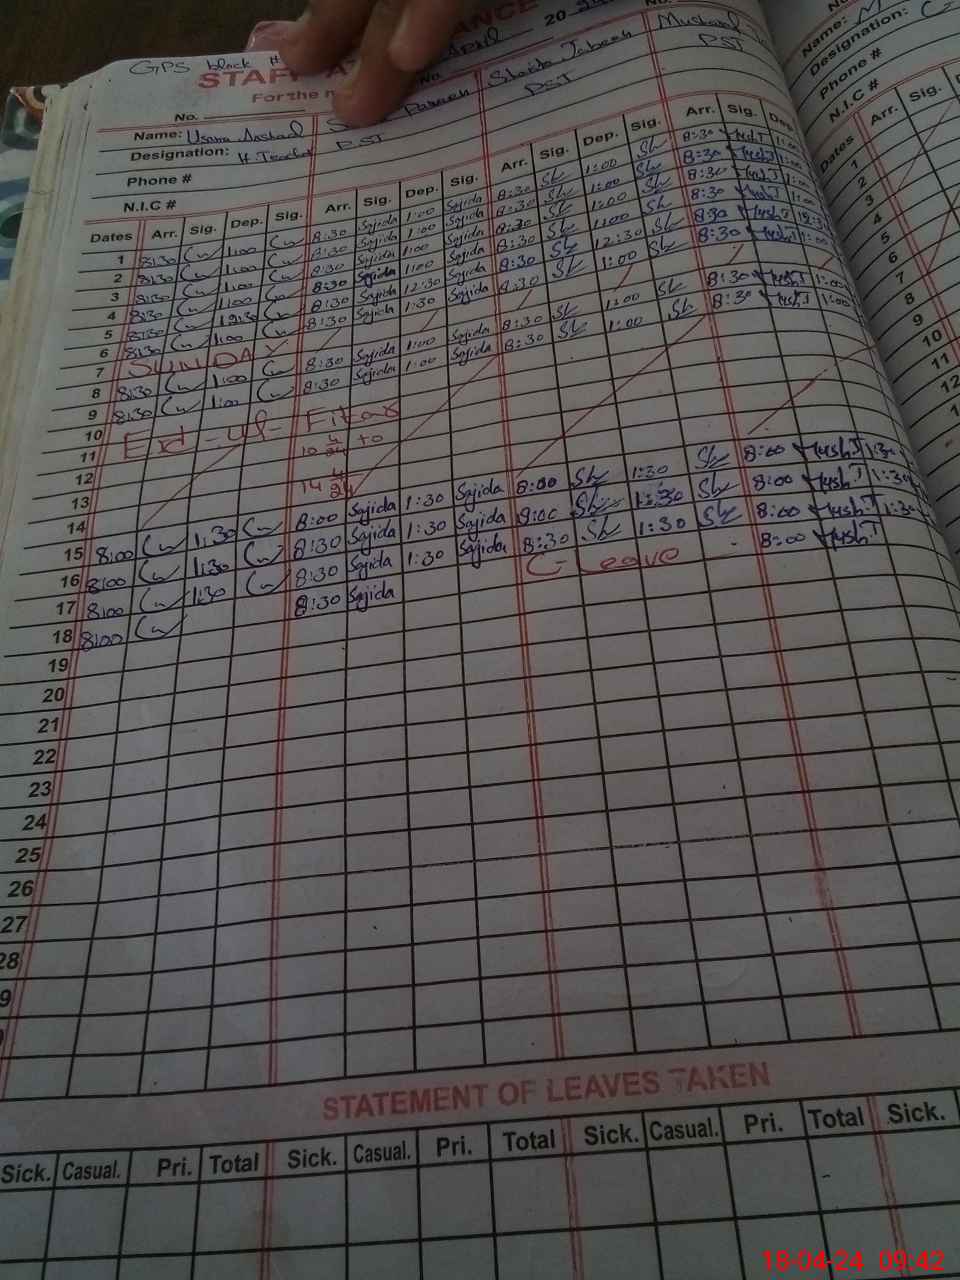 GPS block #
STAFF A ANCE
For the m April 20 24
No. No. No.
Name: Usama Arshad S Parveen Shaista Jabeen Musharaf
Designation: H. Teacher PST PST PST
Phone #
N.I.C #
Dates Arr. Sig. Dep. Sig. Arr. Sig. Dep. Sig. Arr. Sig. Dep. Sig. Arr. Sig. Dep
1 8:30 1:00 8:30 Sajida 1:00 Sajida 8:30 Sh 1:00 Sh 8:30 Mush.J 1:00
2 8:30 1:00 8:30 Sajida 1:00 Sajida 8:30 Sh 1:00 Sh 8:30 Mush.J 1:00
3 8:30 1:00 8:30 Sajida 1:00 Sajida 8:30 Sh 1:00 Sh 8:30 Mush.J 1:00
4 8:30 1:00 8:30 Sajida 1:00 Sajida 8:30 Sh 1:00 Sh 8:30 Mush.J 1:00
5 8:30 12:30 8:30 Sajida 12:30 Sajida 8:30 Sh 12:30 Sh 8:30 Mush.J 12:3
6 8:30 1:00 8:30 Sajida 1:30 Sajida 8:30 Sh 1:00 Sh 8:30 Mush.J 1:00
7 SUNDAY
8 8:30 1:00 8:30 Sajida 1:00 Sajida 8:30 Sh 1:00 Sh 8:30 Mush.J 1:00
9 8:30 1:00 8:30 Sajida 1:00 Sajida 8:30 Sh 1:00 Sh 8:30 Mush.J 1:00
10 Eid-ul-Fitar
11 10 4/24 to
12 14 4/24
13
14
15 8:00 1:30 8:00 Sajida 1:30 Sajida 8:00 Sh 1:30 Sh 8:00 Mush.J 1:30
16 8:00 1:30 8:30 Sajida 1:30 Sajida 8:00 Sh 1:30 Sh 8:00 Mush.J 1:30
17 8:00 1:30 8:30 Sajida 1:30 Sajida 8:30 Sh 1:30 Sh 8:00 Mush.J 1:30
18 8:00 8:30 Sajida C-Leave 8:00 Mush.J
19
20
21
22
23
24
25
26
27
28
9
STATEMENT OF LEAVES TAKEN
Sick. Casual. Pri. Total Sick. Casual. Pri. Total Sick. Casual. Pri. Total Sick.
No.
Name: M
Designation: C
Phone #
N.I.C #
Dates Arr. Sig. D
1
2
3
4
5
6
7
8
9
10
11
12
18-04-24 09:42